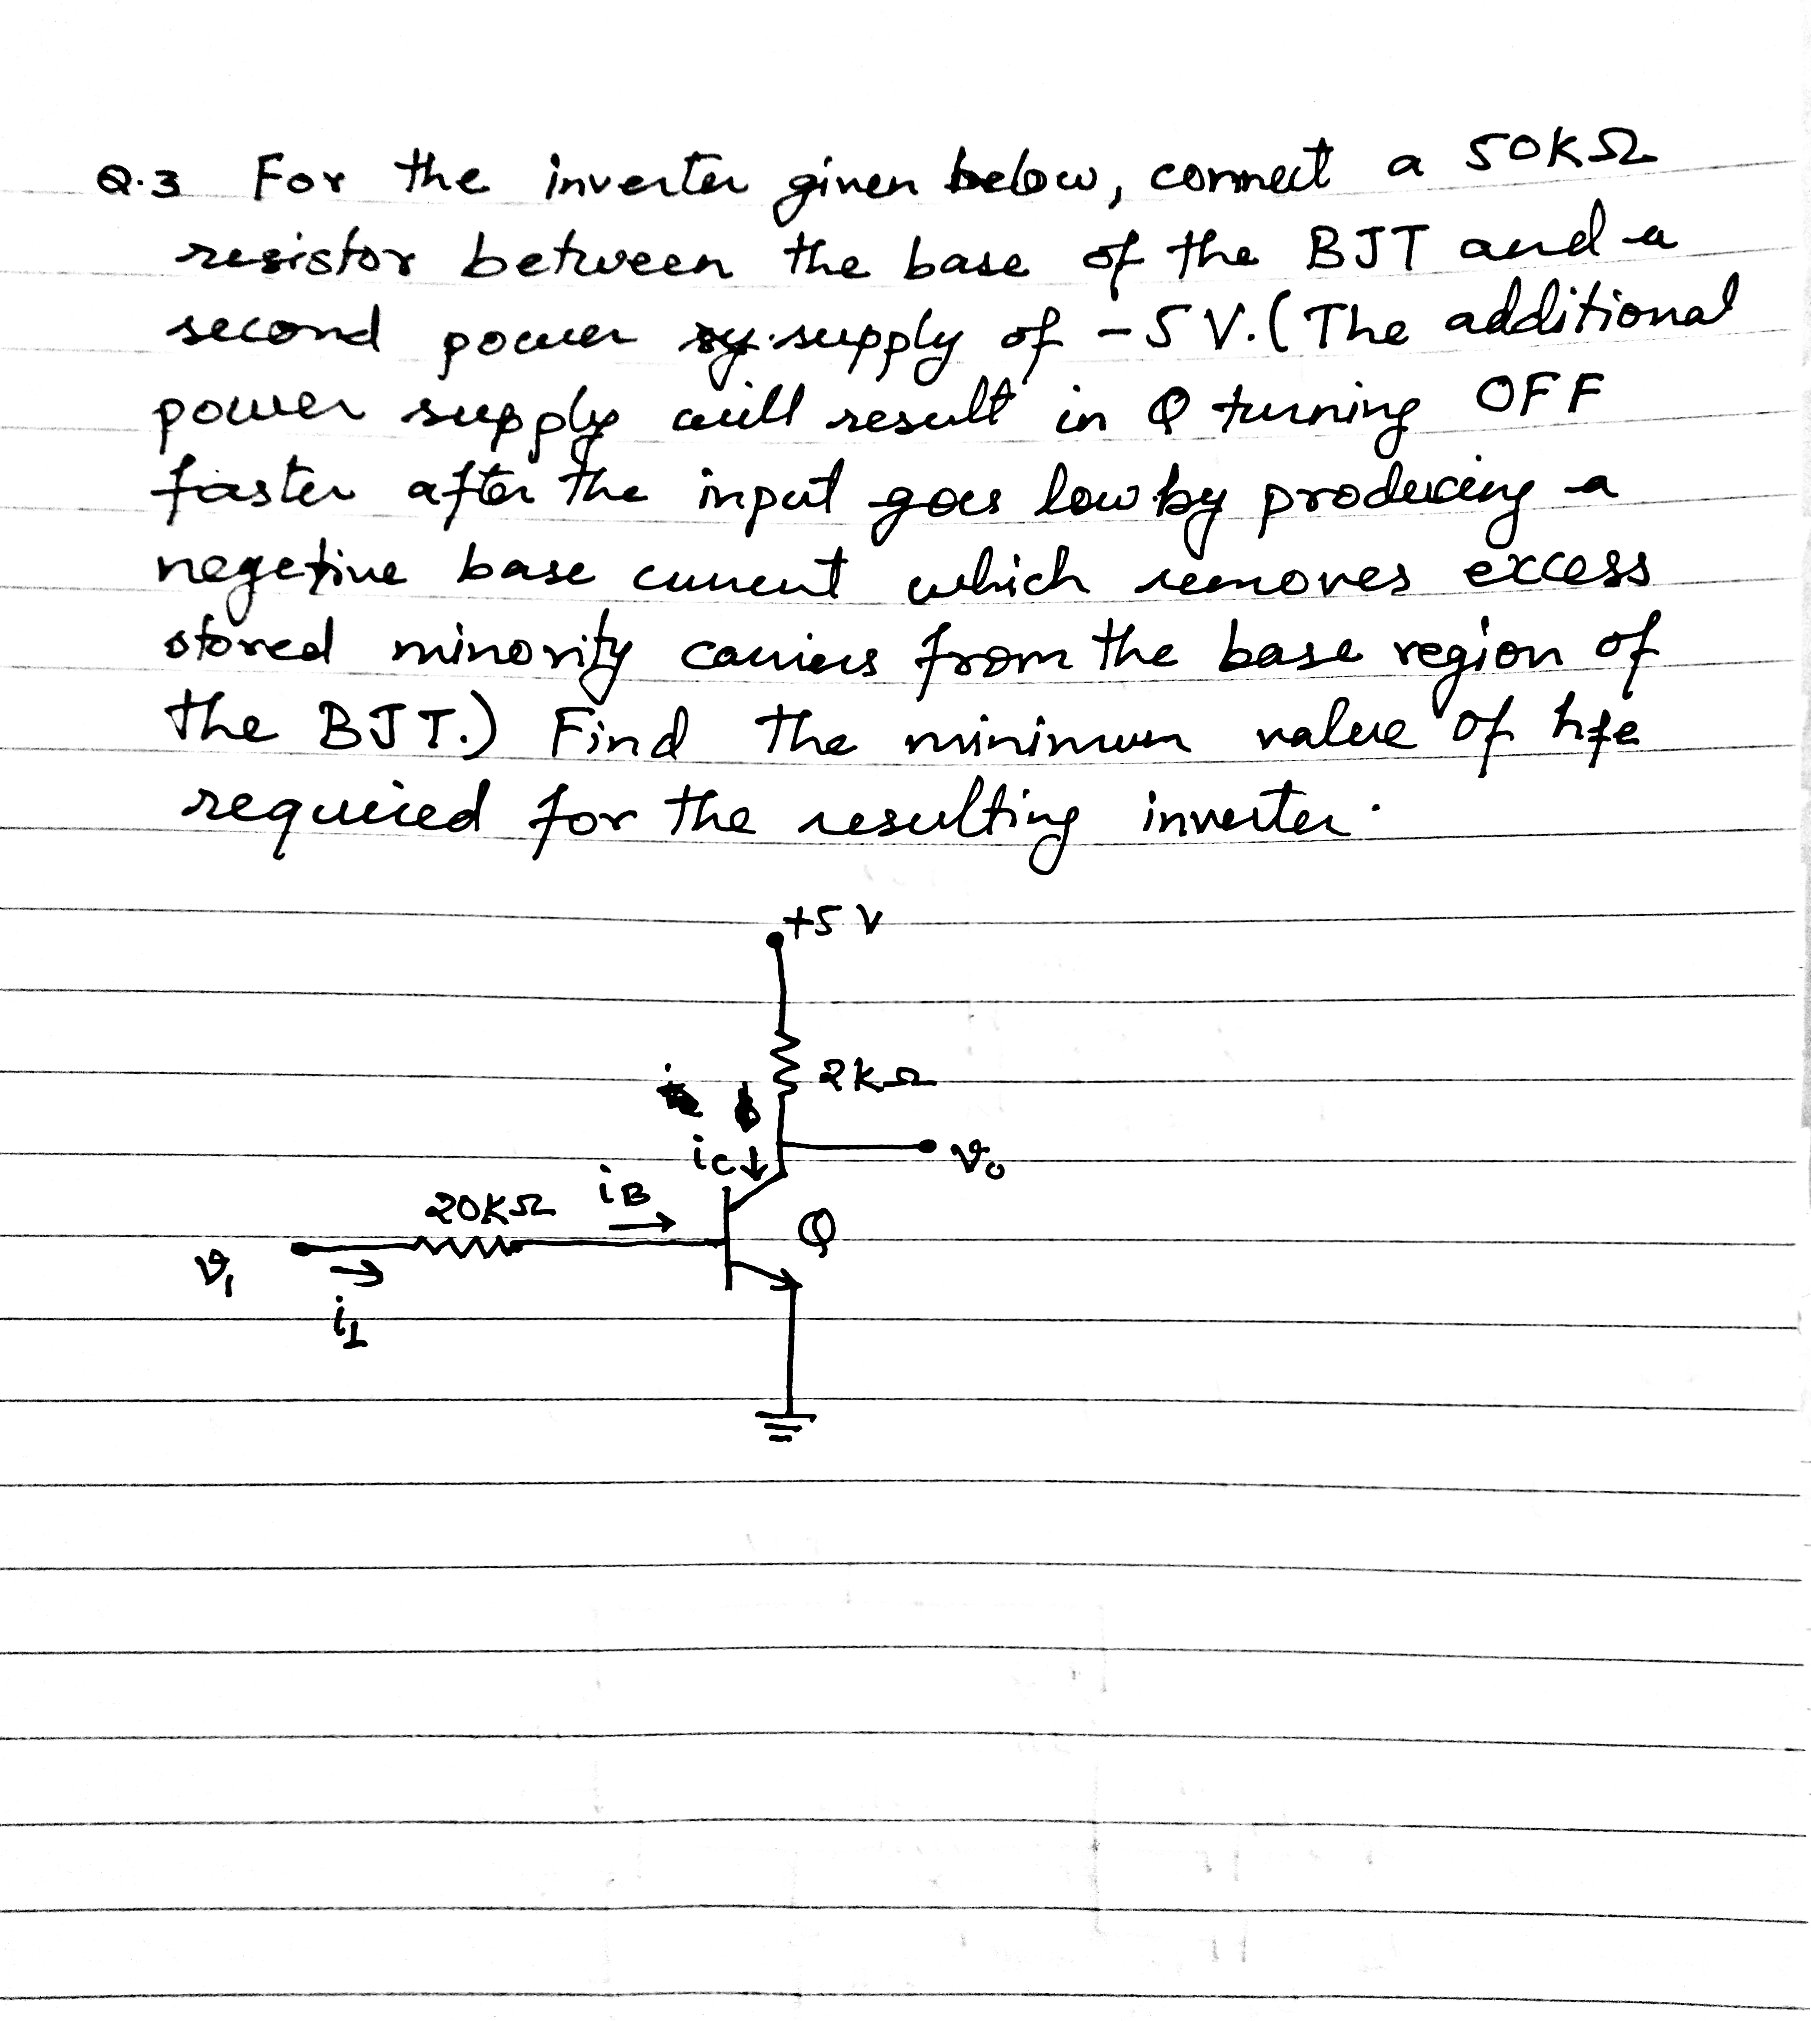 Q.3 For the inverter given below, connect a 50KΩ
resistor between the base of the BJT and a
second power supply of -5 V. (The additional
power supply will result in Q turning OFF
faster after the input goes low by producing a
negetive base current which removes excess
stored minority carriers from the base region of
the BJT.) Find the minimum value of hfe
required for the resulting inverter.
+5 V
2KΩ
ic
v₀
20KΩ
iB
Q
v₁
i₁